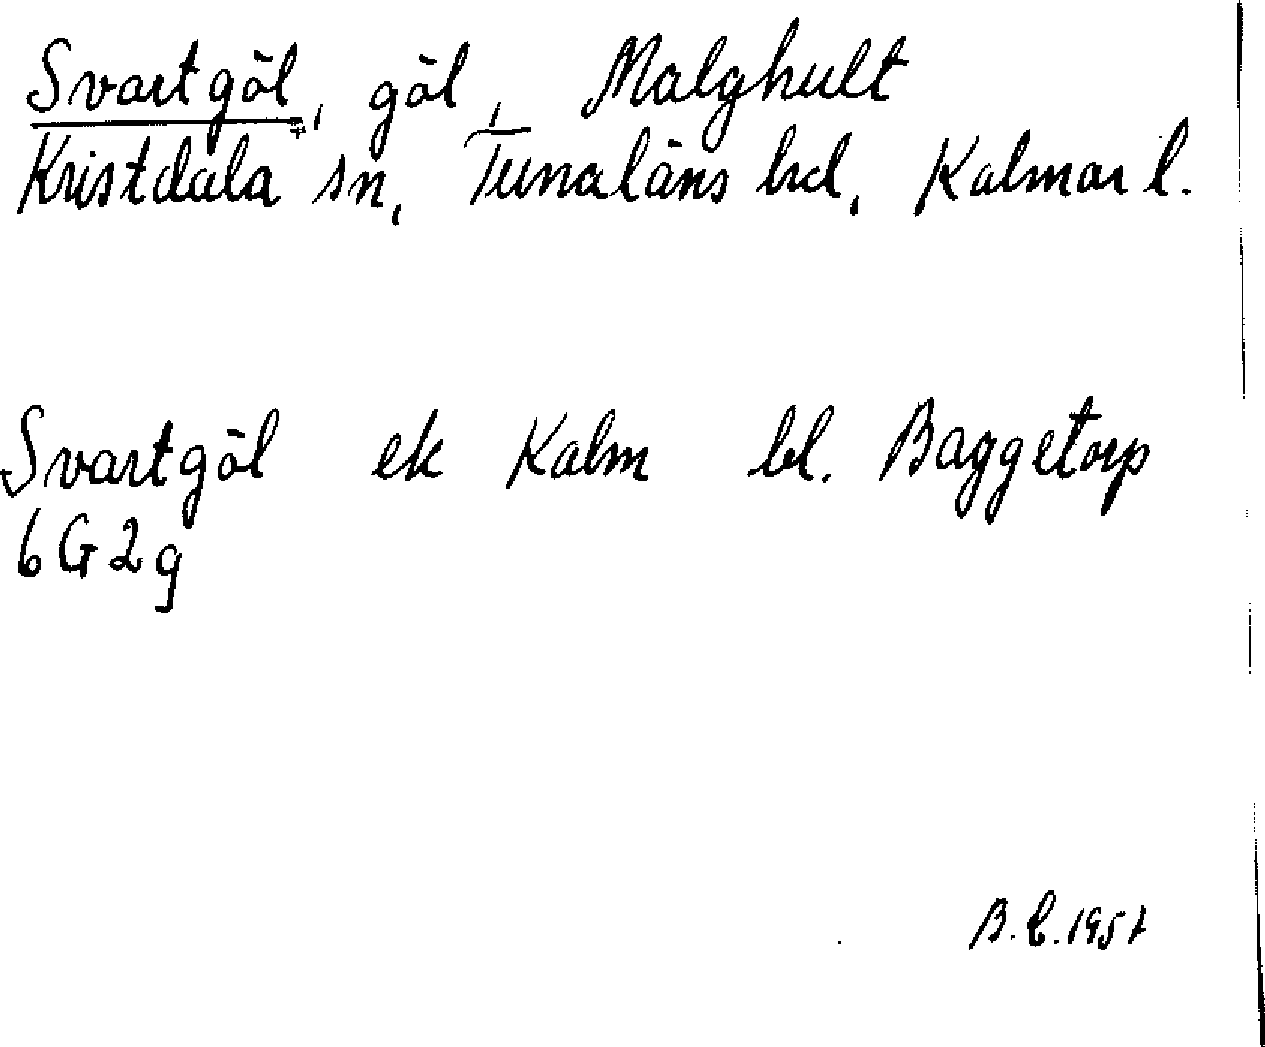 Svartgöl, göl, Malghult
Kristdala sn, Tunaläns hd, Kalmar l.
Svartgöl ek Kalm bl. Baggetorp
6G2g
B.C. 1957